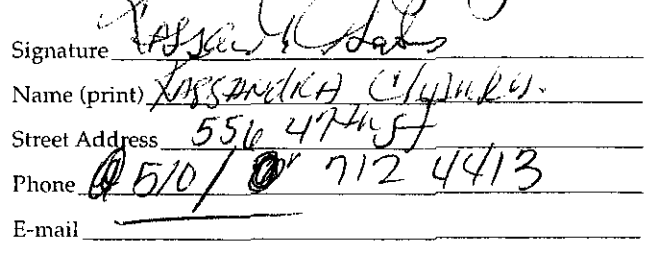 Signature
Name (print) KASSANDRA
Street Address 556 47th st
Phone 510/ 712 4413
E-mail